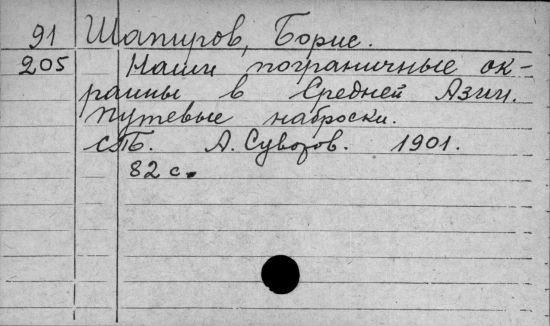 91 Шапиров, Борис.
205 Наши пограничные ок-
раины в Средней Азии.
Путевые наброски.
СПБ. А. Суворов. 1901.
82 с.